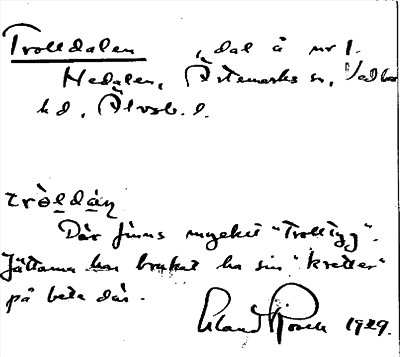 Trolldalen , dal å nr 1.
Nedalen, Ärtemarks sn, Vedbo
hd, Älvsb. l.
tròldáṇ
Där finns mycket "Trolltyg".
Jättarna ha brukat ha sin "kretter"
på beta där.
1929.